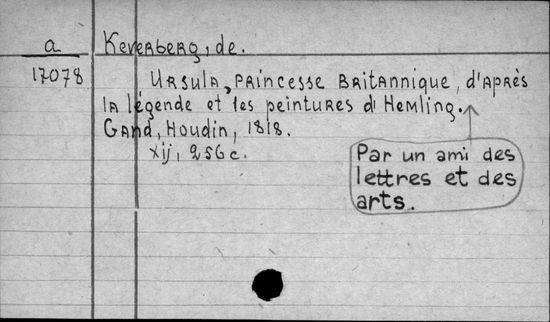 a Keverberg, de.
17078 Ursula, princesse Britannique, d'après
la légende et les peintures d'Hemling.
Gand, Houdin, 1818.
xij, 256 c.
Par un ami des
lettres et des
arts.